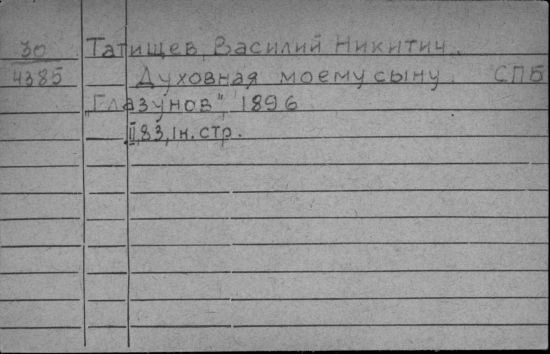 30 Татищев, Василий Никитич.
4385 Духовная моему сыну СПБ
„Глазунов", 1896
II, 83, Iн. стр.